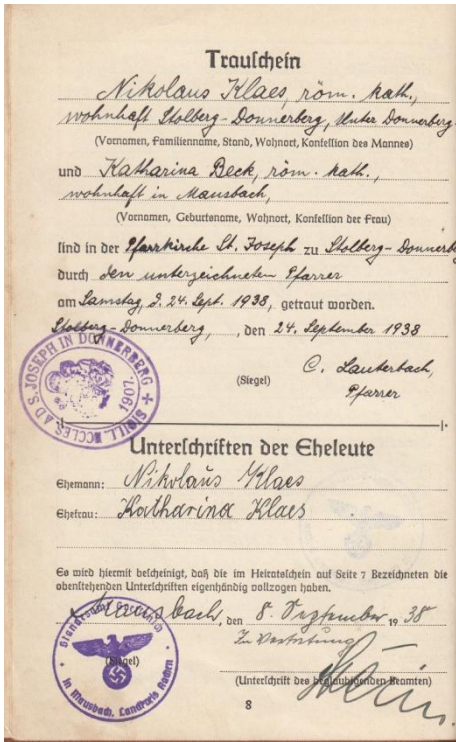 Trauschein
Nikolaus Klaes, röm. kath.,
wohnhaft Stolberg-Donnerberg, Unter Donnerberg
(Vornamen, Familienname, Stand, Wohnort, Konfession des Mannes)
und Katharina Beck, röm. kath.,
wohnhaft in Mausbach,
(Vornamen, Geburtsname, Wohnort, Konfession der Frau)
sind in der Pfarrkirche St. Joseph zu Stolberg-Donnerbg
durch den unterzeichneten Pfarrer
am Samstag, d. 24. Sept. 1938, getraut worden.
Stolberg-Donnerberg, , den 24. September 1938
(Siegel) C. Lauterbach,
Pfarrer
SIGILL. ECCLES. AD S. JOSEPH IN DONNERBERG
1907.
Unterschriften der Eheleute
Ehemann: Nikolaus Klaes
Ehefrau: Katharina Klaes
Es wird hiermit bescheinigt, daß die im Heiratsschein auf Seite 7 Bezeichneten die
obenstehenden Unterschriften eigenhändig vollzogen haben.
Mausbach, den 8. September 1938
In Vertretung
(Siegel)
Standesamt
in Mausbach, Landkreis Aachen
(Unterschrift des beglaubigenden Beamten)
8